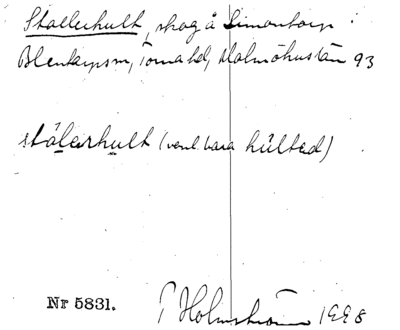 Stallerhult, skog å Simontorp i
Blentarpsn, Torna hd, Malmöhus län 93
stålerhult (venl. bara hûlted)
Nr 5831. P Holmström 1998